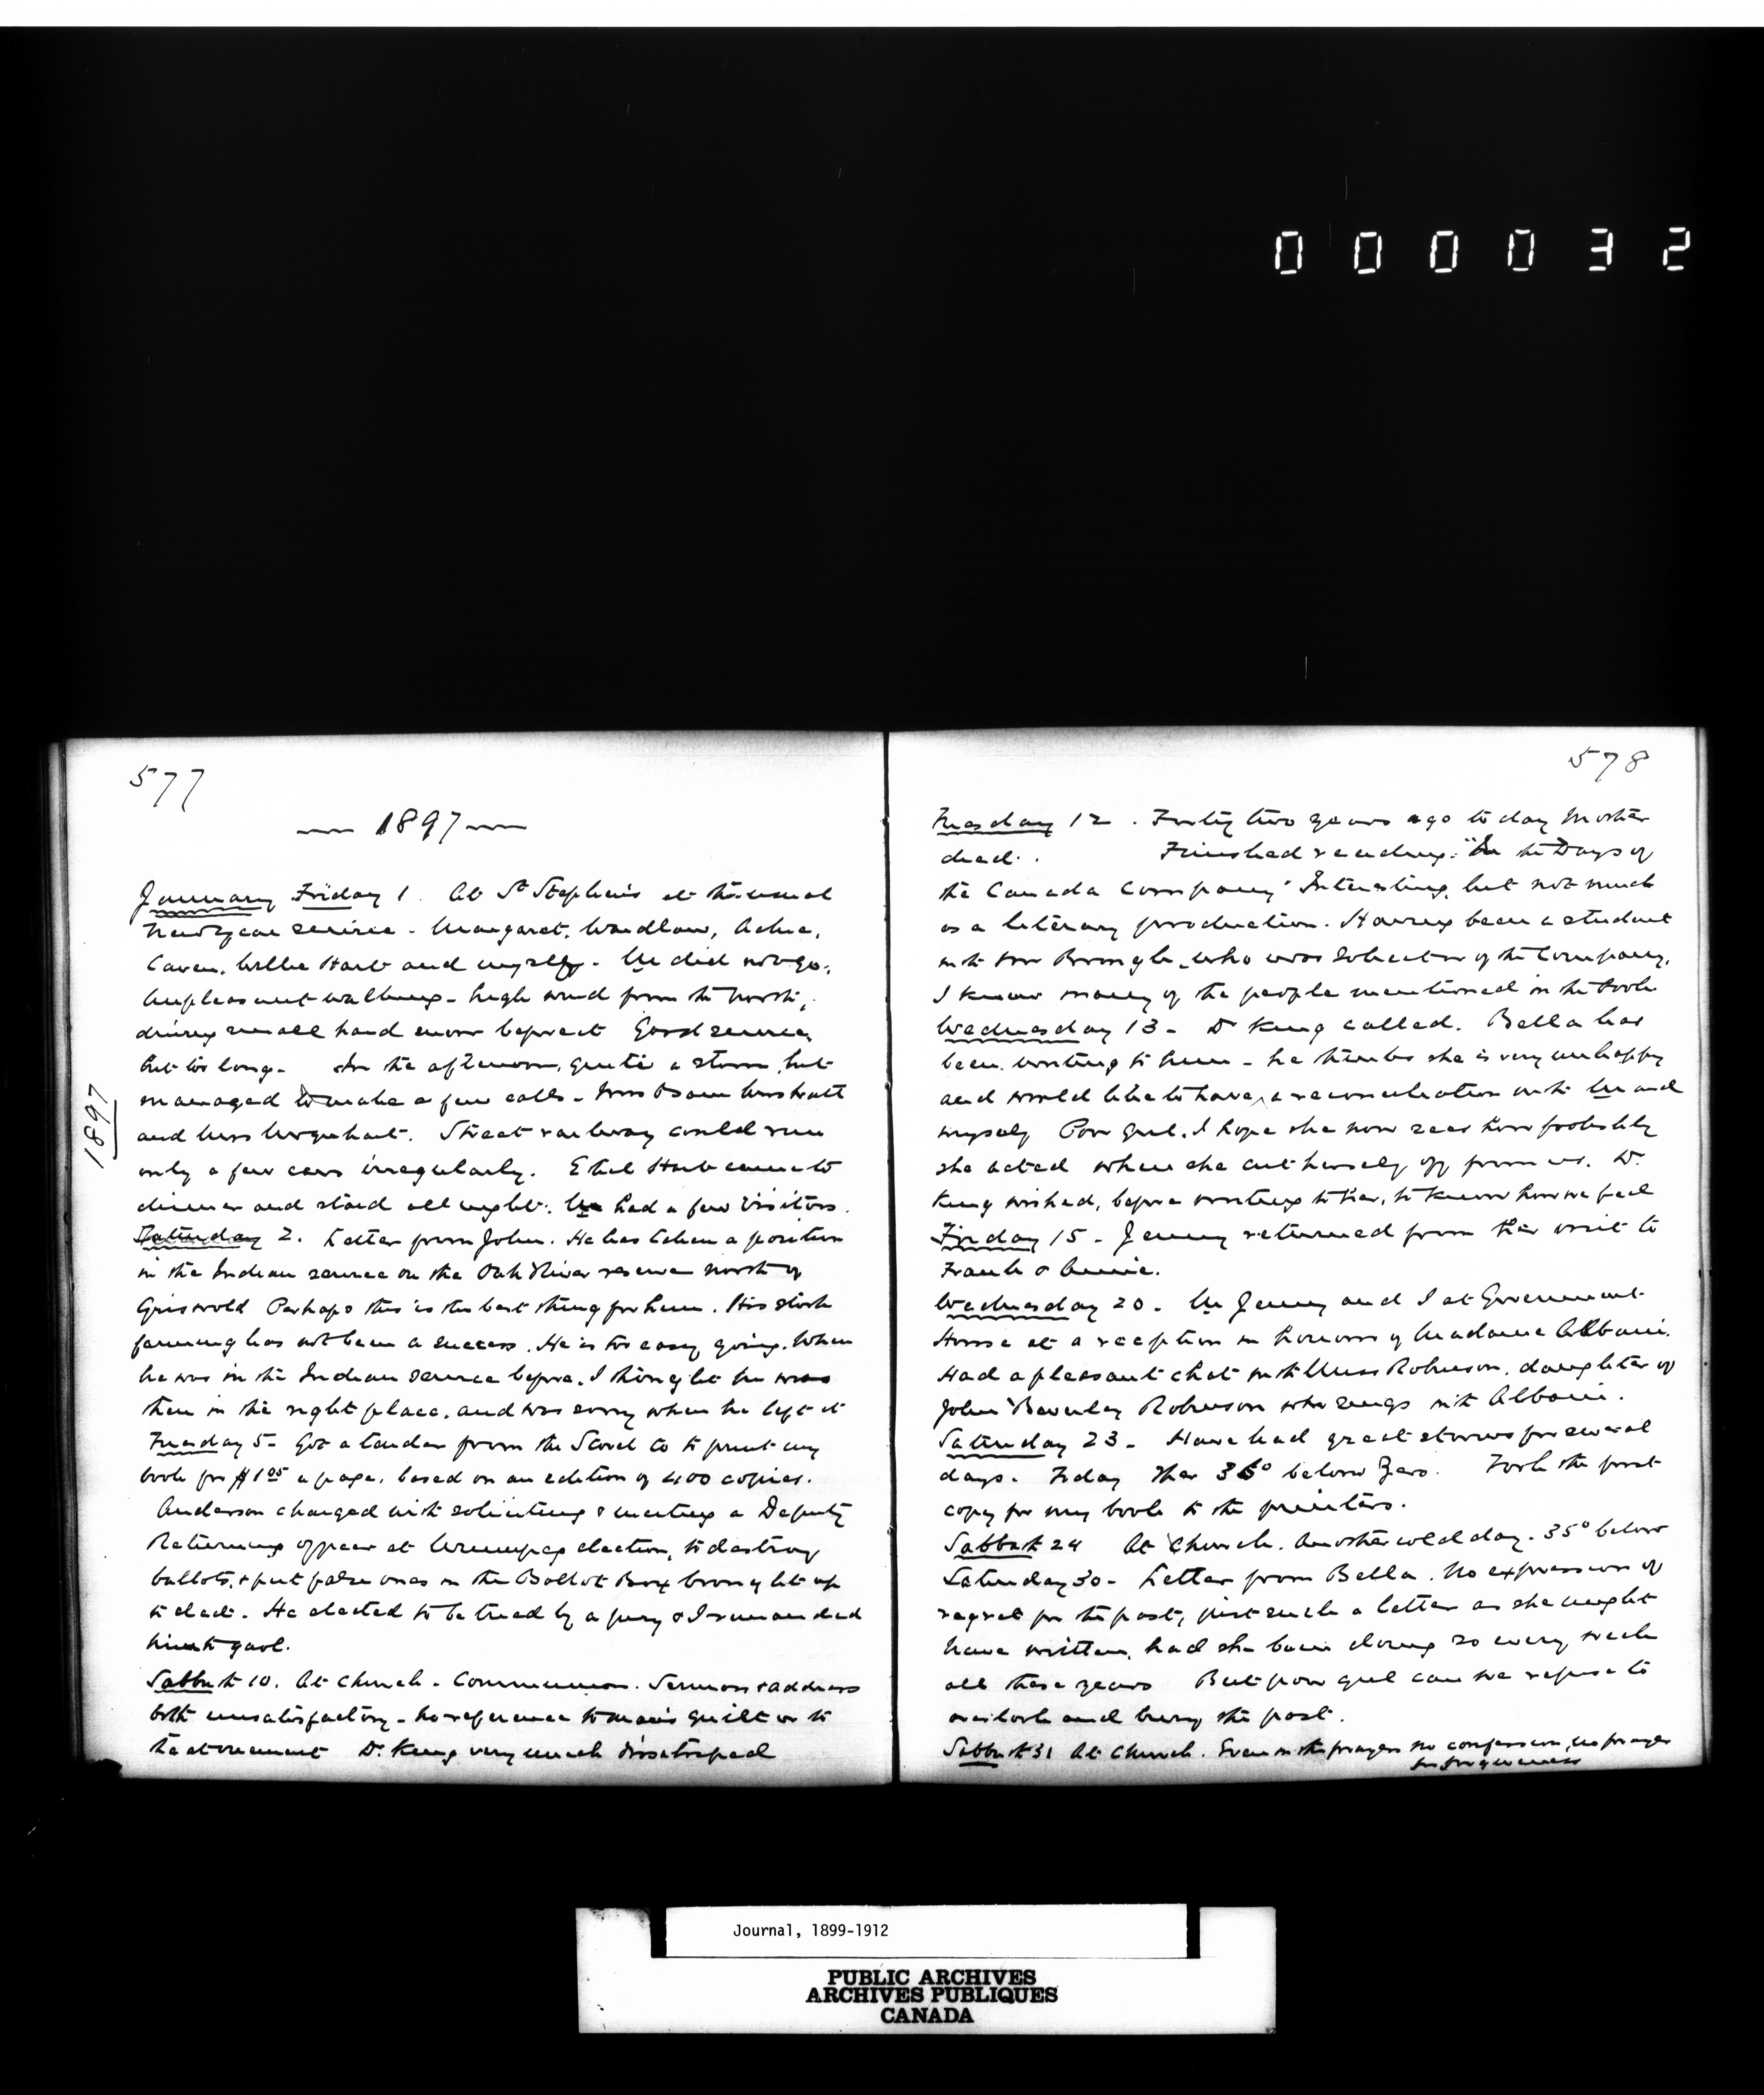 000032
577
1897
January Friday 1. At St Stephen's at the usual
New Year service - Margaret, Wardlaw,
Caven, Willie Hart and myself. M did not go.
Unpleasant walking - high wind from the North,
driving small hard snow before it Good service,
but too long. In the afternoon, quite a storm, but
managed to make a few calls -
and Mrs Urquhart. Street railway could run
only a few cars irregularly. Ethel Hart came to
dinner and staid all night. We had a few visitors.
Saturday 2. Letter from John. He has taken a position
in the Indian service on the Oak River reserve north of
Griswold Perhaps this is the best thing for him. His stock
farming has not been a success. He is too easy going. When
he was in the Indian service before, I thought he was
then in the right place, and was sorry when he left it
Tuesday 5 - Got a tender from the Stovel Co to print my
book for $1.05 a page, based on an edition of 400 copies.
Anderson charged with soliciting & inciting a Deputy
Returning officer at Winnipeg election, to destroy
ballots, & put false ones in the Ballot Box brought up
to elect. He elected to be tried by a jury & I remanded
him to gaol.
Sabbath 10. At Church - Communion. Sermon & address
both unsatisfactory - no reference to man's guilt or to
the atonement Dr King very much dissatisfied
1897
578
Tuesday 12. Forty two years ago to day Mother
died. Finished reading "In the Days of
the Canada Company" Interesting, but not much
as a literary production. Having been a student
with Mr Bringle, who was Solicitor of the Company,
I knew many of the people mentioned in the book
Wednesday 13 - Dr King called. Bella has
been writing to him - he thinks she is very unhappy
and would like to have a reconciliation with M and
myself Poor girl, I hope she now sees how foolishly
she acted when she cut herself off from us. Dr
King wished, before writing to her, to know how we feel
Friday 15 - Jenny returned from her visit to
Frank & Annie.
Wednesday 20 - M Jenny and I at Government
House at a reception in honour of Madame Albani.
Had a pleasant chat with Miss Robinson, daughter of
John Beverley Robinson who sings with Albani.
Saturday 23 - Have had great storms for several
days. Today Ther 36° below Zero. Took the first
copy for my book to the printers.
Sabbath 24 At Church. Another cold day - 35° below
Saturday 30 - Letter from Bella. No expression of
regret for the past, just such a letter as she might
have written, had she been doing so every week
all these years But poor girl can we refuse to
overlook and bury the past.
Sabbath 31 At Church. Even in the prayers no confession, no prayer
for forgiveness
Journal, 1899-1912
PUBLIC ARCHIVES
ARCHIVES PUBLIQUES
CANADA